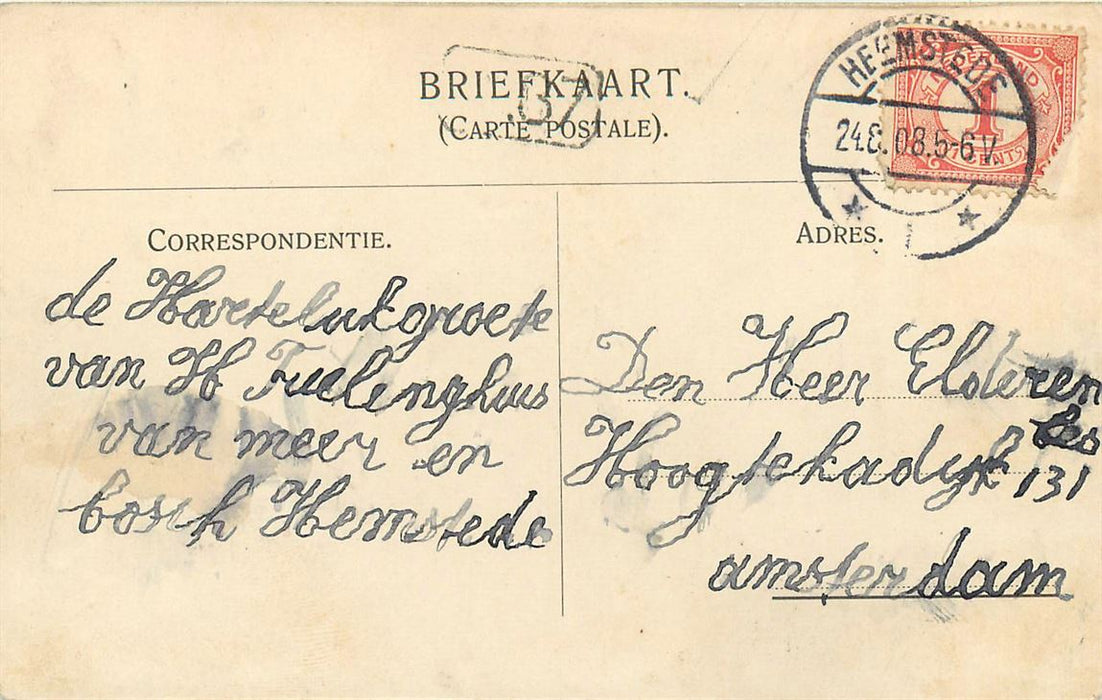 BRIEFKAART.
(CARTE POSTALE).
37
HEEMSTEDE
24.8.08.5-6V
1
CENT
CORRESPONDENTIE.
de Hartelukgroete
van H Tuelinghuis
van meer en
bosch Hemstede
ADRES.
Den Heer Elderen
Hoogtekadyk 131
amsterdam